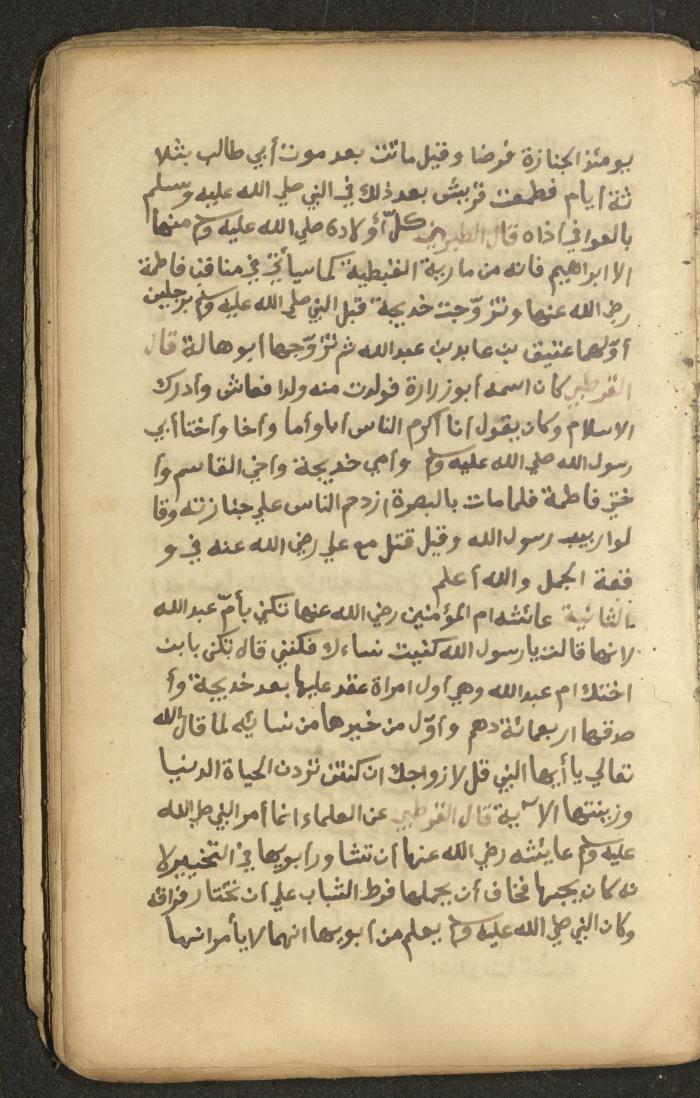 يومئذ الجنازة فرضا وقيل ماتت بعد موت أبي طالب بثلا
ثة أيام فطمعت قريش بعد ذلك في النبي صلي الله عليه وسلم
بالعوا في أذاه قال الطبري كلّ أولاده صلي الله عليه وسلم منها
الا ابراهيم فانه من مارية القبطية كما سيأتي في مناقب فاطمة
رضي الله عنها وتزوّجت خديجة قبل النبي صلي الله عليه وسلم برجلين
أوّلهما عتيق بن عابد بن عبدالله ثم تزوّجها أبو هالة قال
القرطبي كان اسمه أبو زرارة فولدت منه ولدا فعاش وأدرك
الاسلام وكان يقول أنا أكرم الناس أبا وأما وأخا وأختا أبي
رسول الله صلي الله عليه وسلم وأمي خديجة وأخي القاسم وأ
ختي فاطمة فلما مات بالبصرة ازدحم الناس علي جنازته وقا
لوا ربيب رسول الله وقيل قتل مع علي رضي الله عنه في و
قعة الجمل والله أعلم
الثانية عائشه ام المؤمنين رضي الله عنها تكني بأمّ عبدالله
لانها قالت يا رسول الله كنيت نساءك فكنني قال تكني بابن
اختك ام عبدالله وهي أول امراة عقد عليها بعد خديجة وأ
صدقها اربعمائة دهم وأوّل من خيرها من نسايئه لما قال الله
تعالي يا أيها النبي قل لازواجك ان كنتن تردن الحياة الدنيا
وزينتها الآية قال القرطبي عن العلماء انما أمر النبي صلي الله
عليه وسلم عايشه رضي الله عنها أن تشاور أبويها في التخيير لا
نه كان يحبها فخاف أن يحملها فرط الشباب علي أن تختار فراقه
وكان النبي صلي الله عليه وسلم يعلم من أبويها انهما لا يأمرانها